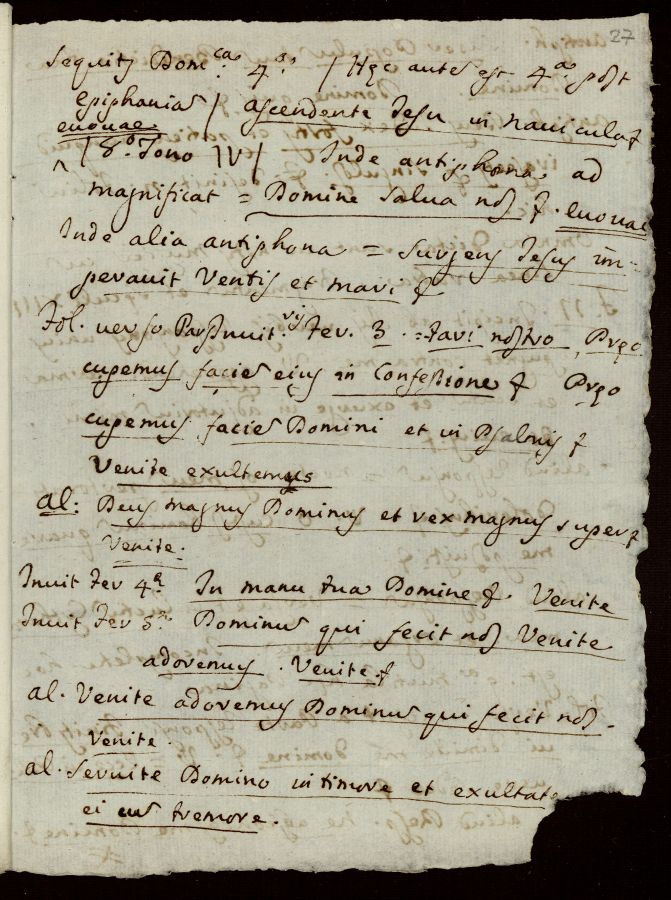 27
Sequitj Domca 4a. / Hęc aute est 4a post
epiphania / ascendente Jesu in navicula &
euouae.
^ / 8.o Tono IV / Inde antiphona ad
magnificat = Domine salua nos & . euouae
Inde alia antiphona = surgens Jesus im-
peravit Ventis et mari &
Fol. verso Inuit. Fer. 3. = nostro, Pręo
cupemus facie eius in Confessione & Pręo
cupemus facie Domini et in Psalmis &
Venite exultemus
al: Deus magnus Dominus et rex magnus super &
Venite.
Inuit Fer 4a In manu tua Domine & . Venite
Inuit Fer 5a Dominu qui fecit nos Venite
adoremus . Venite &
al. Venite adoremus Dominu qui fecit nos.
Venite.
al. Seruite Domino in timore et exultate
ei cu tremore.